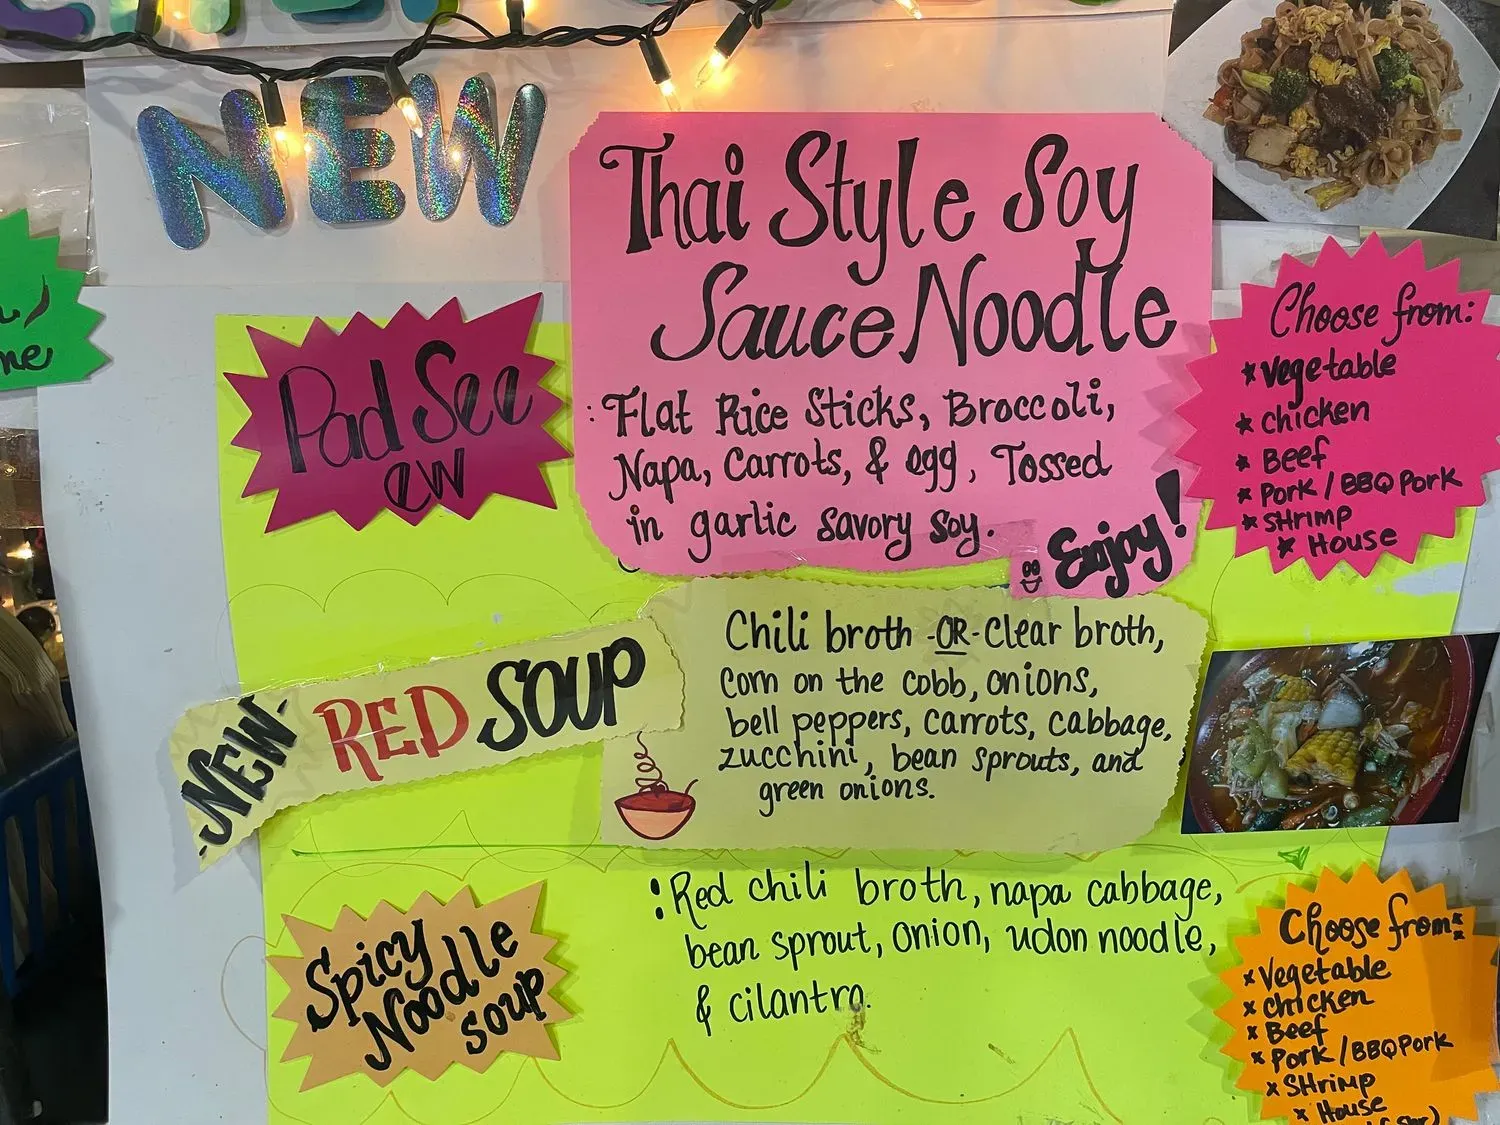 NEW
Thai Style Soy
Sauce Noodle
: Flat Rice Sticks, Broccoli,
Napa, Carrots, & egg, Tossed
in garlic savory soy.
Enjoy!
Pad See
ew
Choose from:
* Vegetable
* Chicken
* Beef
* Pork / BBQ Pork
* SHrimp
* House
-NEW- RED SOUP
Chili broth -OR- Clear broth,
Corn on the cobb, onions,
bell peppers, carrots, cabbage,
zucchini, bean sprouts, and
green onions.
Spicy
Noodle
soup
: Red chili broth, napa cabbage,
bean sprout, onion, udon noodle,
& cilantro.
Choose from:
* Vegetable
* Chicken
* Beef
* Pork / BBQ Pork
* SHrimp
* House